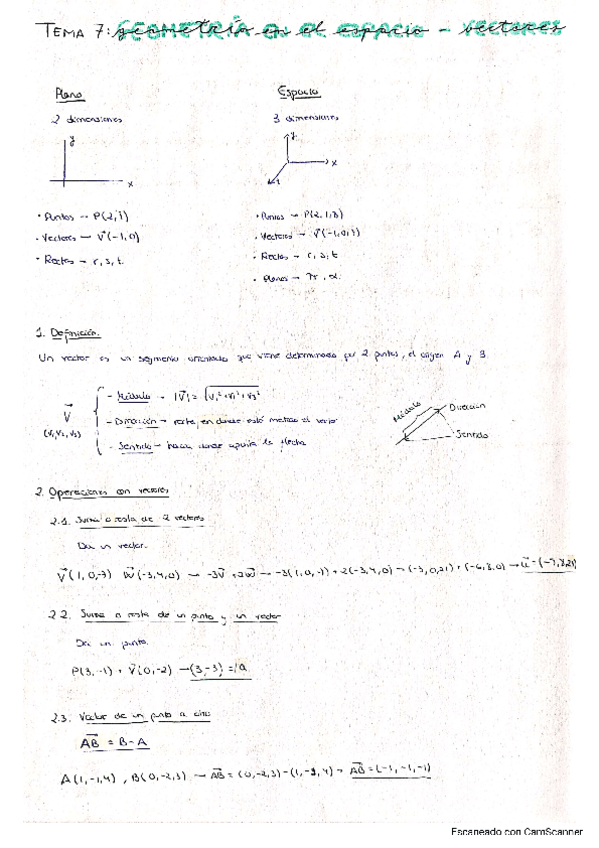 TEMA 7: GEOMETRÍA EN EL ESPACIO - VECTORES
geometría en el espacio - vectores
Plano
Espacio
2 dimensiones
3 dimensiones
y
x
y
x
z
· Puntos → P(2,1)
· Vectores → V(-1,0)
· Rectas → r, s, t.
· Puntos → P(2,1,3)
· Vectores →
· Rectas → r, s, t
· Planos → π, α.
1. Definición.
Un vector es un segmento orientado que viene determinado por 2 puntos, el origen A y B.
V
(V₁,V₂,V₃)
- Módulo → |V| = √V₁²+V₂²+V₃²
- Dirección → recta en donde está metido el vector
- Sentido → hacia donde apunta la flecha
Módulo
Dirección
Sentido
2. Operaciones con vectores
2.1. Suma o resta de 2 vectores
Da un vector.
V(1,0,-7) W(-3,4,0) → -3V+2W → -3(1,0,-7)+2(-3,4,0) → (-3,0,21)+(-6,8,0) →
2.2. Suma o resta de un punto y un vector
Da un punto.
P(3,-1) + V(0,-2) → (3,-3) = Q
2.3. Vector de un punto a otro
AB = B-A
A(1,-1,4), B(0,-2,3) → AB = (0,-2,3)-(1,-1,4) → AB = (-1,-1,-1)
Escaneado con CamScanner